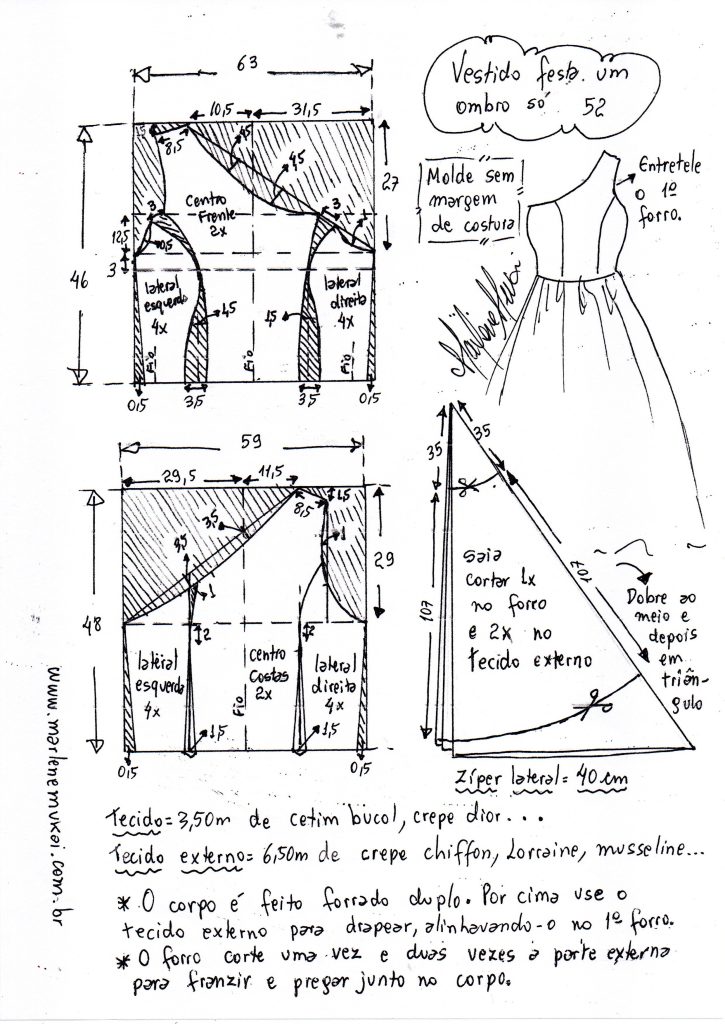 Vestido festa um
ombro só 52
Molde sem
margem
de costura
Entretele
o 1º
forro.
63
10,5
31,5
1,5
8,5
4,5
4,5
27
Centro
Frente
2x
3
3
12,5
0,5
3
46
lateral
esquerdo
4x
lateral
direita
4x
4,5
1,5
Fio
Fio
Fio
0,5
3,5
3,5
0,5
59
29,5
11,5
1,5
8,5
3,5
1
29
48
1
2
2
lateral
esquerdo
4x
centro
Costas
2x
lateral
direita
4x
Fio
1,5
1,5
0,5
0,5
35
35
107
107
saia
cortar 1x
no forro
e 2x no
tecido externo
Dobre ao
meio e
depois
em
triân-
gulo
Zíper lateral = 40 cm
www.marlenemukai.com.br
Tecido = 3,50m de cetim bucol, crepe dior...
Tecido externo = 6,50m de crepe chiffon, Lorraine, musseline...
* O corpo é feito forrado duplo. Por cima use o
tecido externo para drapear, alinhavando-o no 1º forro.
* O forro corte uma vez e duas vezes a parte externa
para franzir e pregar junto no corpo.